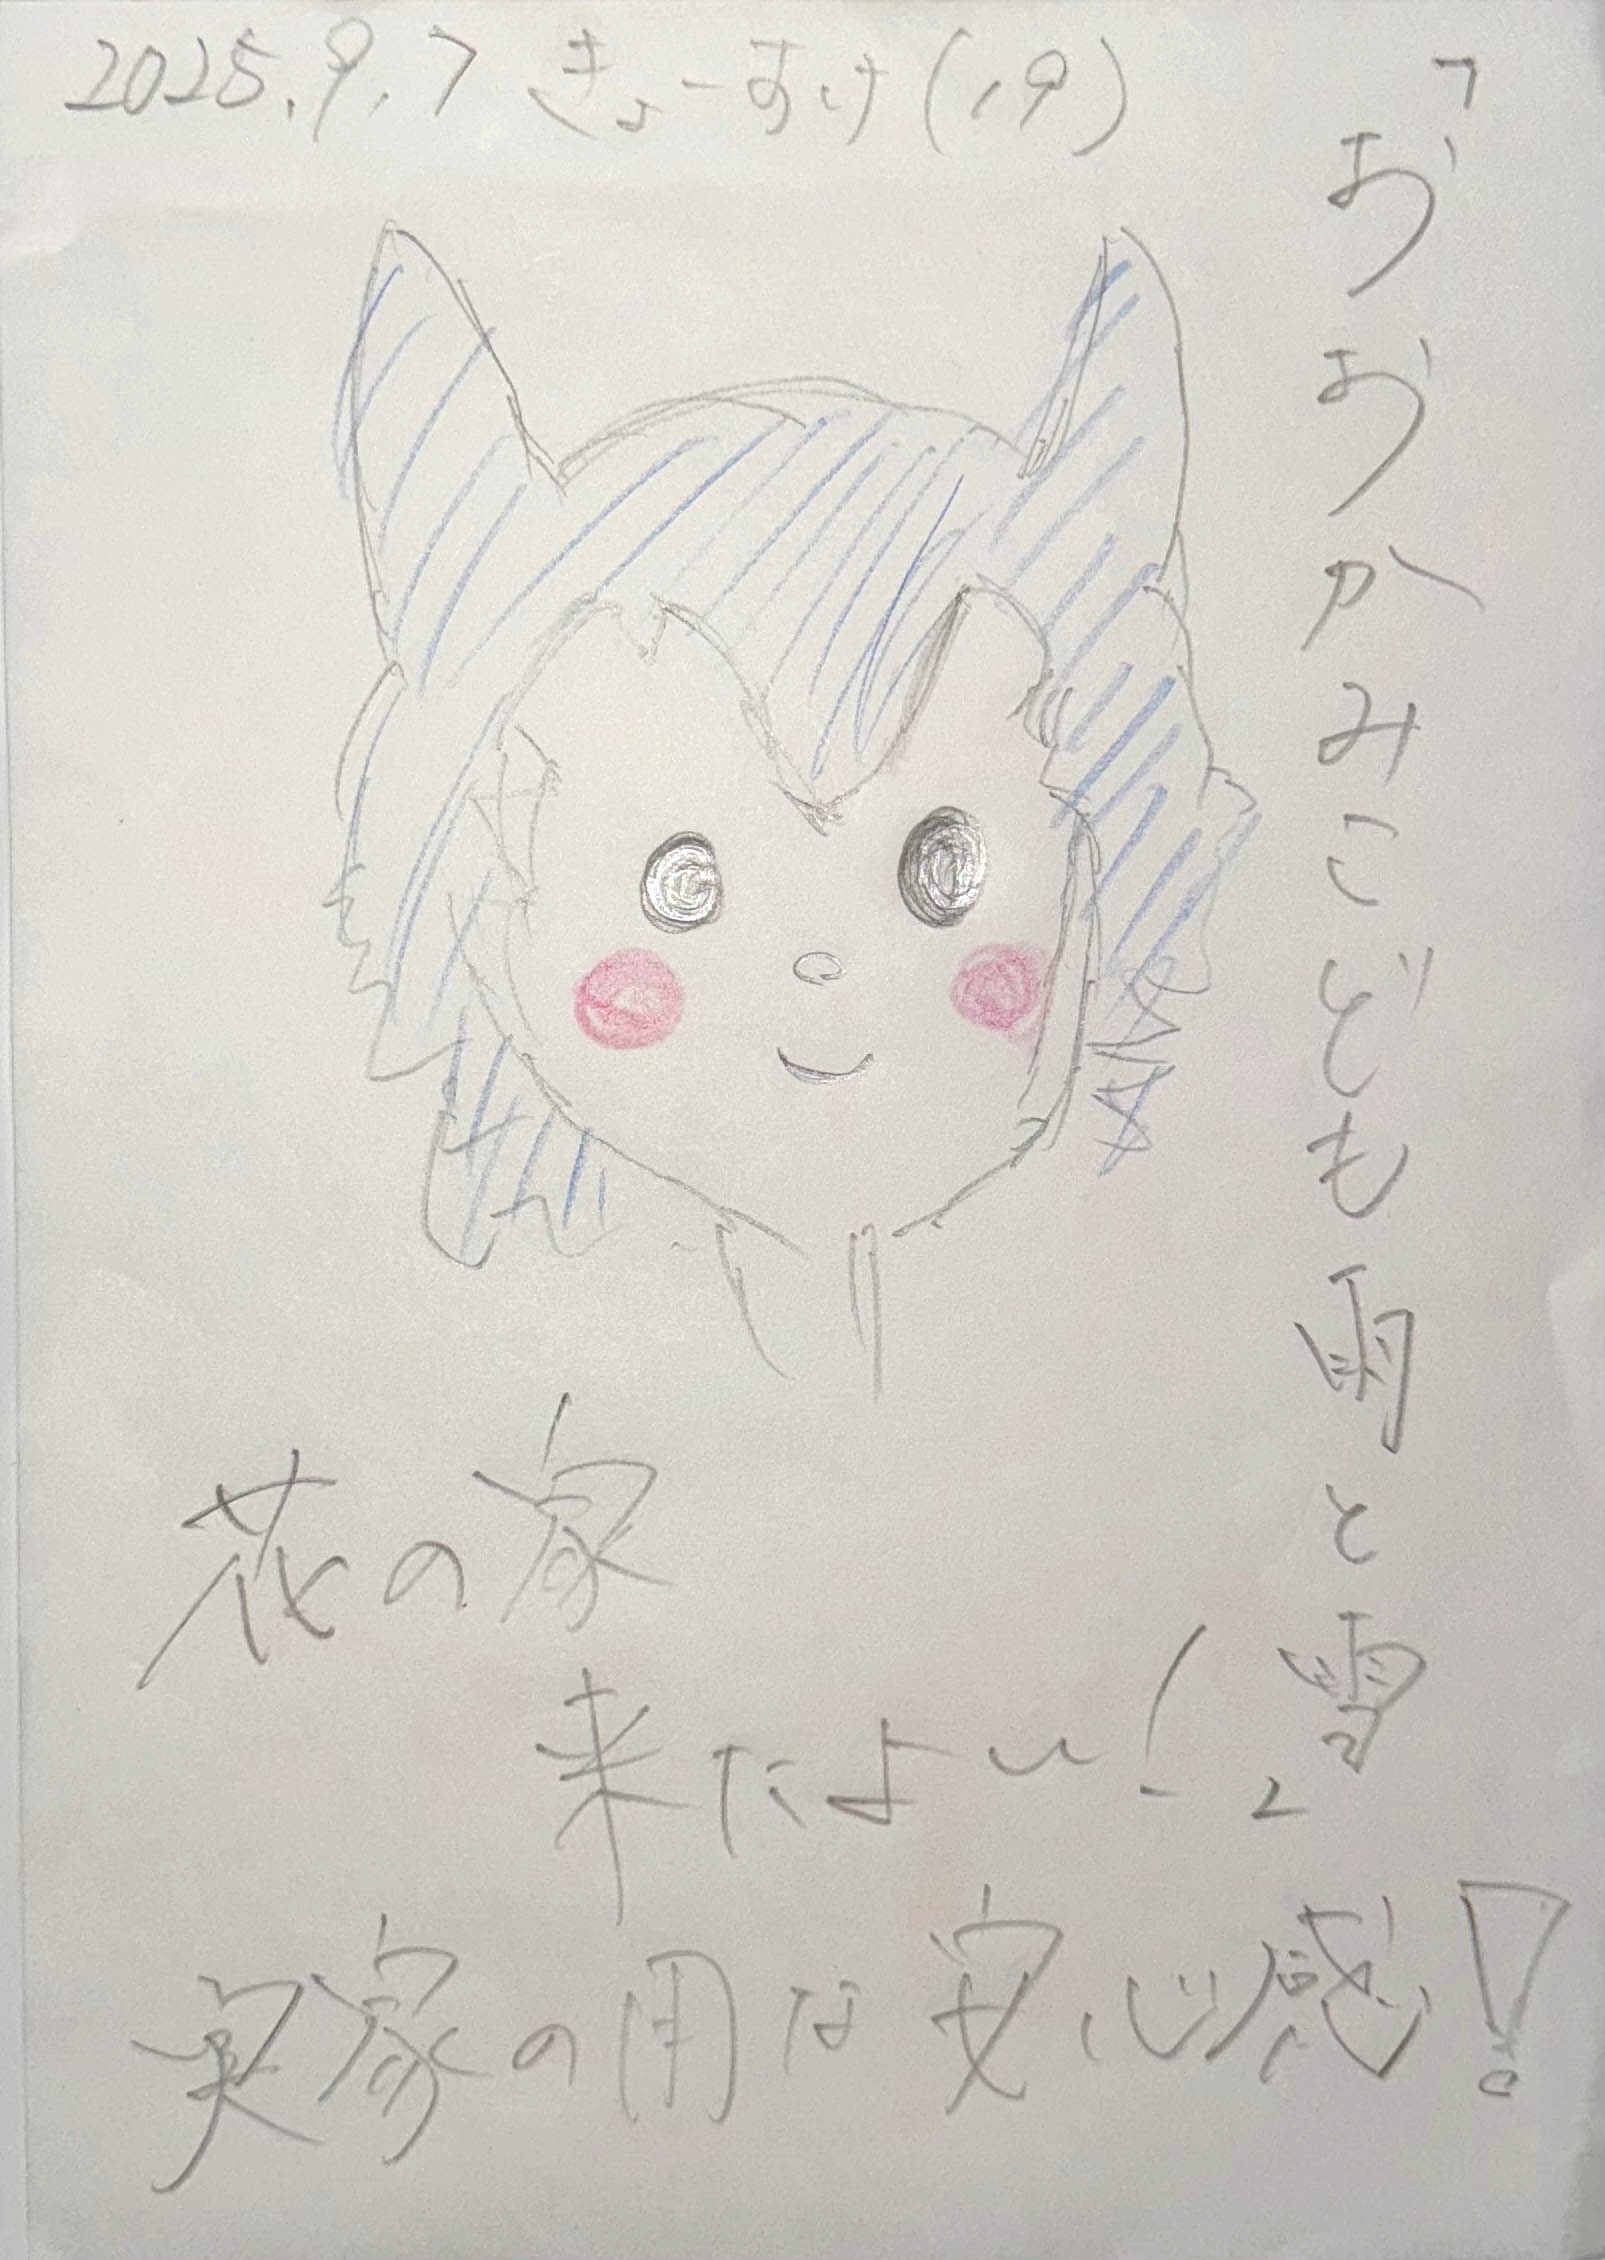 2025.9.7 きょーすけ(19)
「おおかみこども雨と雪」
花の家
来たよ〜!
実家の用な安心感!